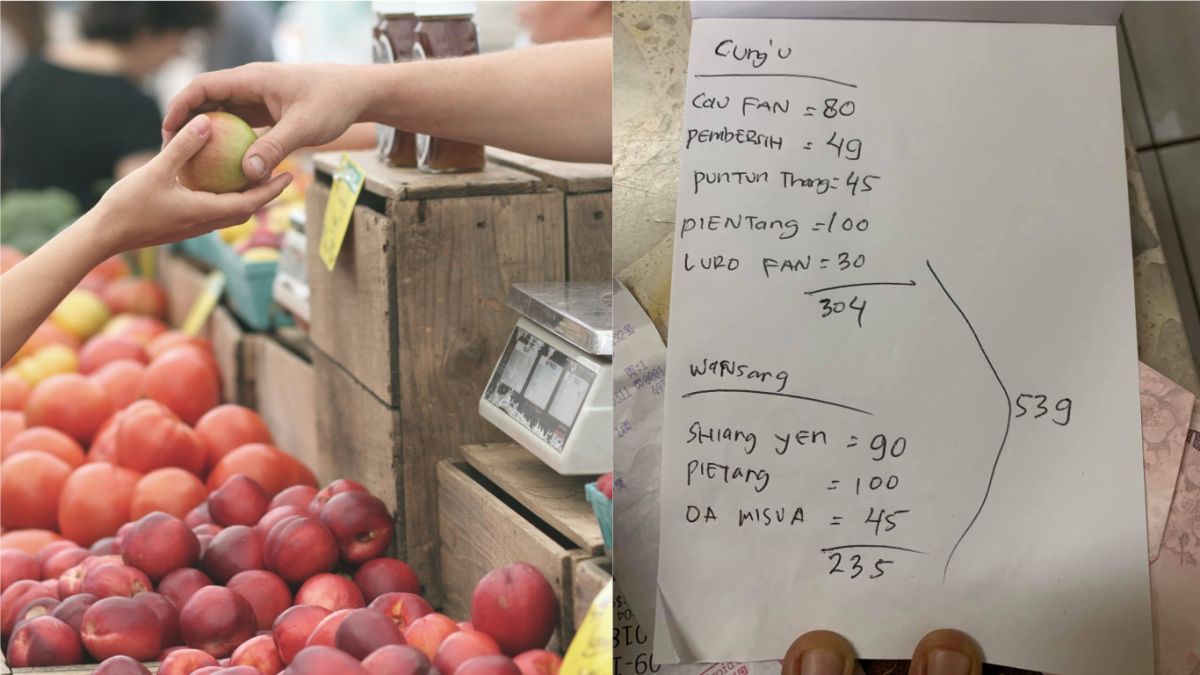 Cung'u
Cau FAN = 80
PEMBERSIH = 49
PUNTUN Thang = 45
PIENTang = 100
LURO FAN = 30
304
WANSang
SHIang YEN = 90
PIETang = 100
OA MISUA = 45
235
539